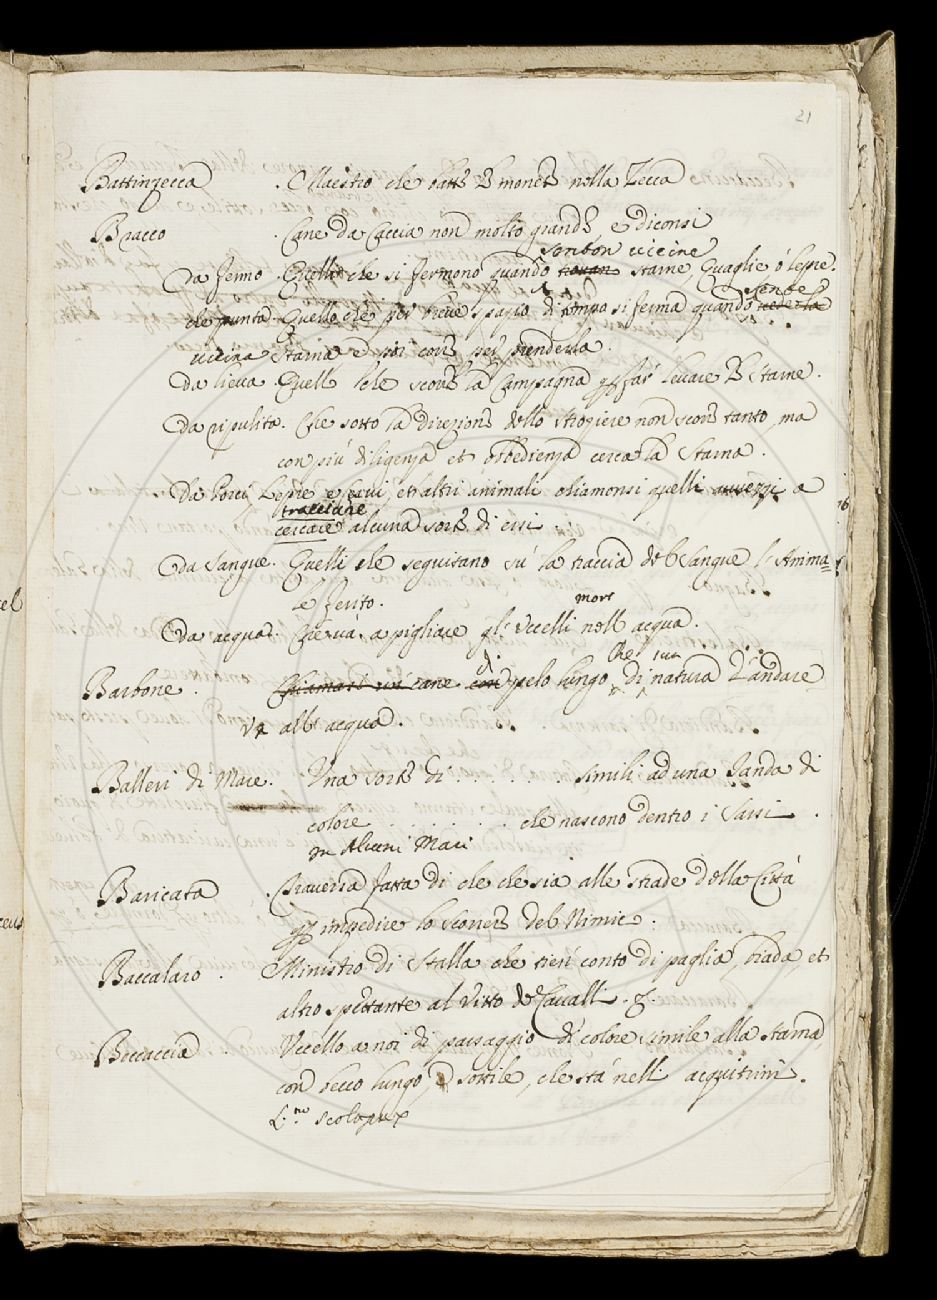 21
Battinzecca . Maestro che batte le monete nella Zecca
Bracco . Cane da Caccia non molto grande, e diconsi
senton vicine
Da fermo . Quelli che si fermono quando trovan starne, Quaglie ò lepre.
sente
che punta Quello che per breve spazio di tempo si ferma quando vede la
vicina starna e poi corre per prenderla.
Da lieva . Quell che scorre la Campagna per far levare le starne .
Da ripulita . Che sotto la direzione dello strogiere non scorre tanto, ma
con più diligenza et obbedienza cerca la starna .
Da Porci Lepre e Cervi, et altri animali chiamonsi quelli avvezzi a
tracciare
cercare alcuna sorte di essi .
Da Sangue . Quelli che seguitano sù la traccia del Sangue l'Anima=
le ferito .
morti
Da acqua . Che và a pigliare gl' Uccelli nell acqua .
di Che
Barbone . Chiamasi un cane con pelo lungo di natura d'andare
và all' acqua .
Balleri di Mare . Una sorte di . . . . simili ad una Janda di
colore . . . . . . . che nascono dentro i Sassi .
in Alcuni Mari
Baricata . Traversa fatta di che che sia alle strade della Città
per impedire lo scorrere del Nimico .
Baccalaro . Ministro di Stalla che tien conto di paglia, biada, et
altro spettante al Vitto de Cavalli .
Beccaccia Uccello a noi di passaggio di colore simile alla starna
con becco lungo, e sottile, che stà nelli acquitrini .
L.no scolopax